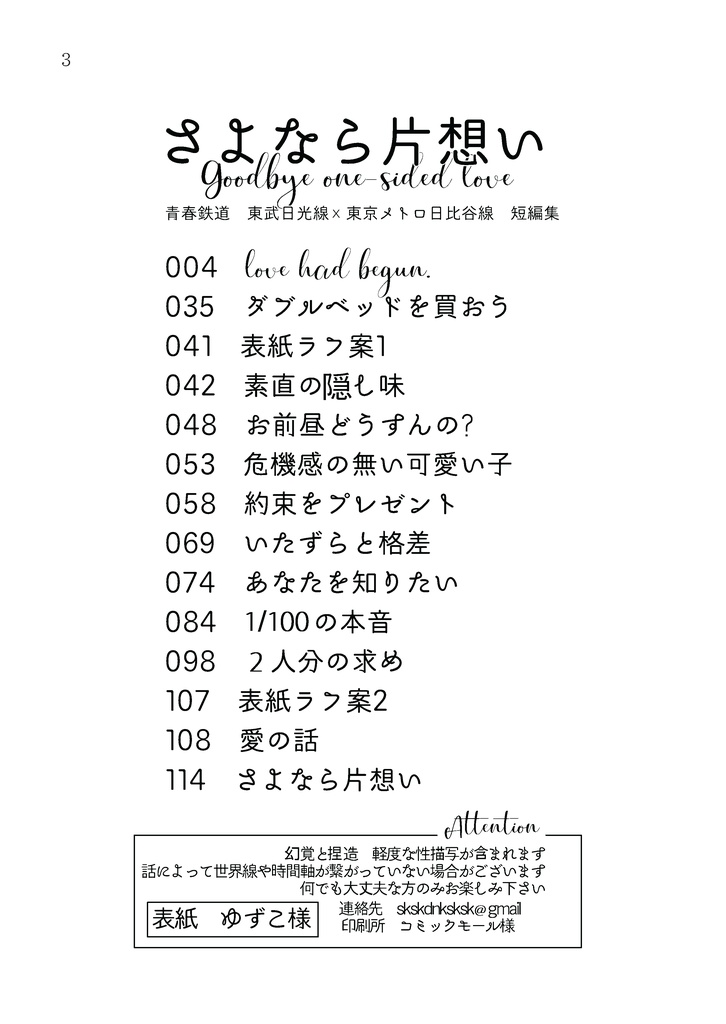 3
さよなら片想い
Goodbye one-sided love
青春鉄道　東武日光線×東京メトロ日比谷線　短編集
004　love had begun.
035　ダブルベッドを買おう
041　表紙ラフ案1
042　素直の隠し味
048　お前昼どうすんの?
053　危機感の無い可愛い子
058　約束をプレゼント
069　いたずらと格差
074　あなたを知りたい
084　1/100の本音
098　２人分の求め
107　表紙ラフ案2
108　愛の話
114　さよなら片想い
Attention
幻覚と捏造　軽度な性描写が含まれます
話によって世界線や時間軸が繋がっていない場合がございます
何でも大丈夫な方のみお楽しみ下さい
表紙　ゆずこ様
連絡先　skskdnksksk@gmail
印刷所　コミックモール様